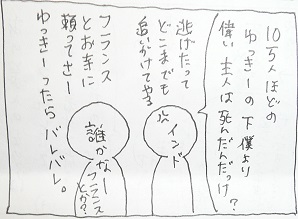 10万人ほどの
ゆっきーの下僕より
偉い主人は死んだんだっけ?
逃げたって
どこまでも
追いかけてやる
インド
フランス
とお寺に
頼ってさー
ゆっきーったらバレバレ。
誰かなー
フランス
とか?